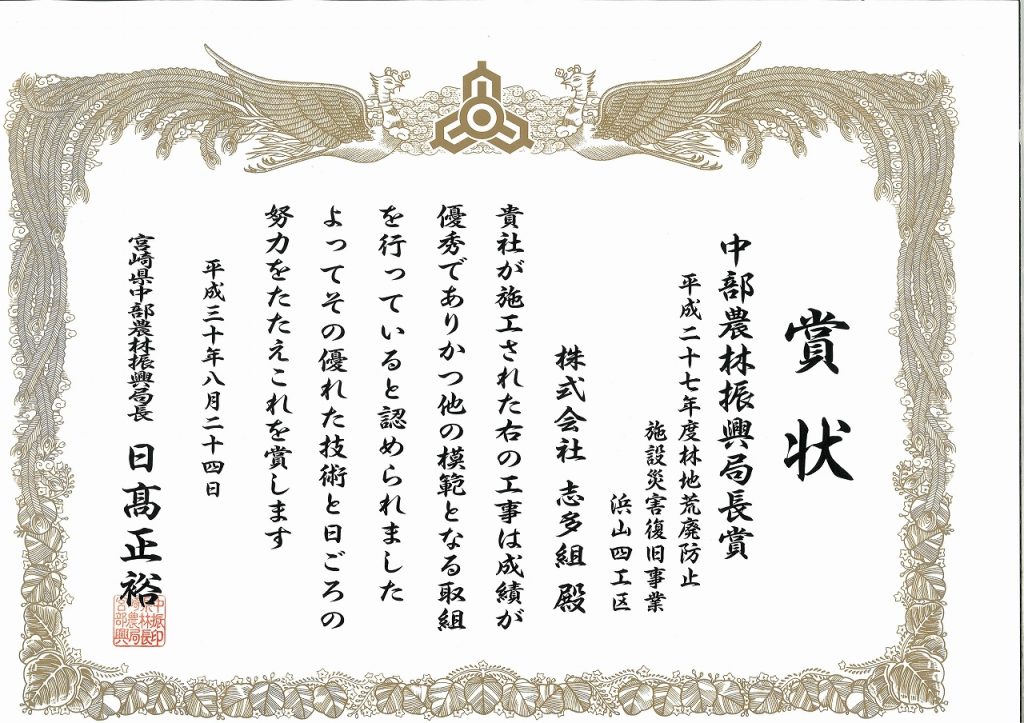 賞状
中部農林振興局長賞
平成二十七年度林地荒廃防止
施設災害復旧事業
浜山四工区
株式会社 志多組 殿
貴社が施工された右の工事は成績が
優秀でありかつ他の模範となる取組
を行っていると認められました
よってその優れた技術と日ごろの
努力をたたえこれを賞します
平成三十年八月二十四日
宮崎県中部農林振興局長 日髙正裕